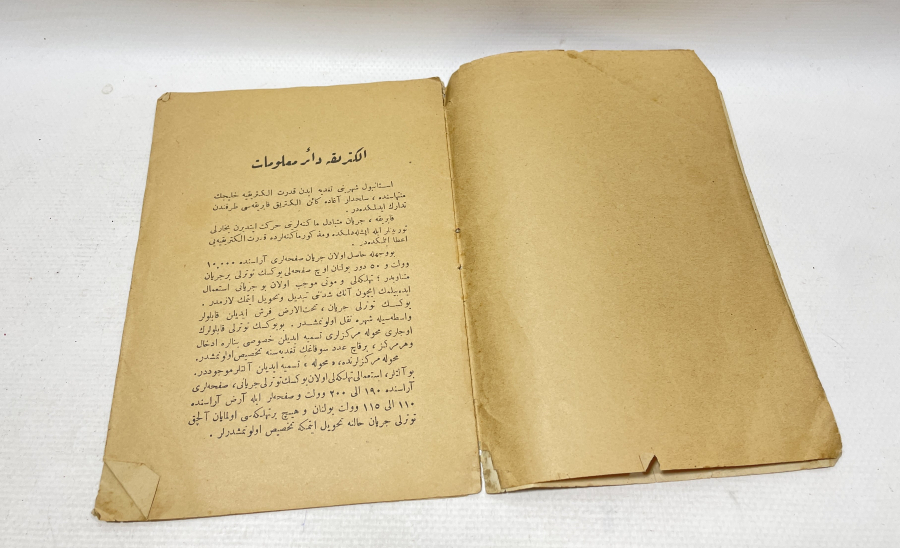 الكتريقه دائر معلومات
استانبول شهرينى تغديه ايدن قدرت الكتريقيه خليجك
منتهاسنده ، سلحدار آغاده كائن الكتريق فابريقه‌سى طرفندن
تدارك ايدلمكده‌در .
فابريقه ، جريان متبادل ماكنه‌لرينى حركت ايتديرن بخارلى
توربينلر ايله ايشله‌مكده ومذكور ماكنه‌لرده قدرت الكتريقيه‌يى
اعطا ايتمكده‌در .
بووجهله حاصل اولان جريان صفحه‌لرى آراسنده ۱۰٫۰۰۰
وولت و ۵۰ دور بولنان اوچ صفحه‌لى يوكسك توترلى برجريان
متناوبدر ؛ تهلكه‌لى و موتى موجب اولان بو جريانى استعمال
ايده‌بيلمك ايچون آنك شدتنى تبديل وتحويل ايتمك لازمدر .
يوكسك توترلى جريان ، تحت‌الارض فرش ايديلن قابلولر
واسطه‌سيله شهره نقل اولونمشدر . بويوكسك توترلى قابلولرك
اوجارى محوله مركزلرى تسميه ايديلن خصوصى بنالره ادخال
وهرمركز ، برقاچ عدد سوقاغك تغديه‌سنه تخصيص اولونمشدر.
محوله مركزلرنده ، « محوله » تسميه ايديلن آلتلر موجوددر.
بوآلتلر ، استعمالى تهلكه‌لى اولان يوكسك توترلى جريانى ، صفحه‌لرى
آراسنده ۱۹۰ الى ۲۰۰ وولت و صفحه‌لر ايله آرض آراسنده
۱۱۰ الى ۱۱۵ وولت بولنان و هيچ برتهلكه‌سى اولمايان آلچق
توترلى جريان حالنه تحويل ايتمكه تخصيص اولونمشدرلر .